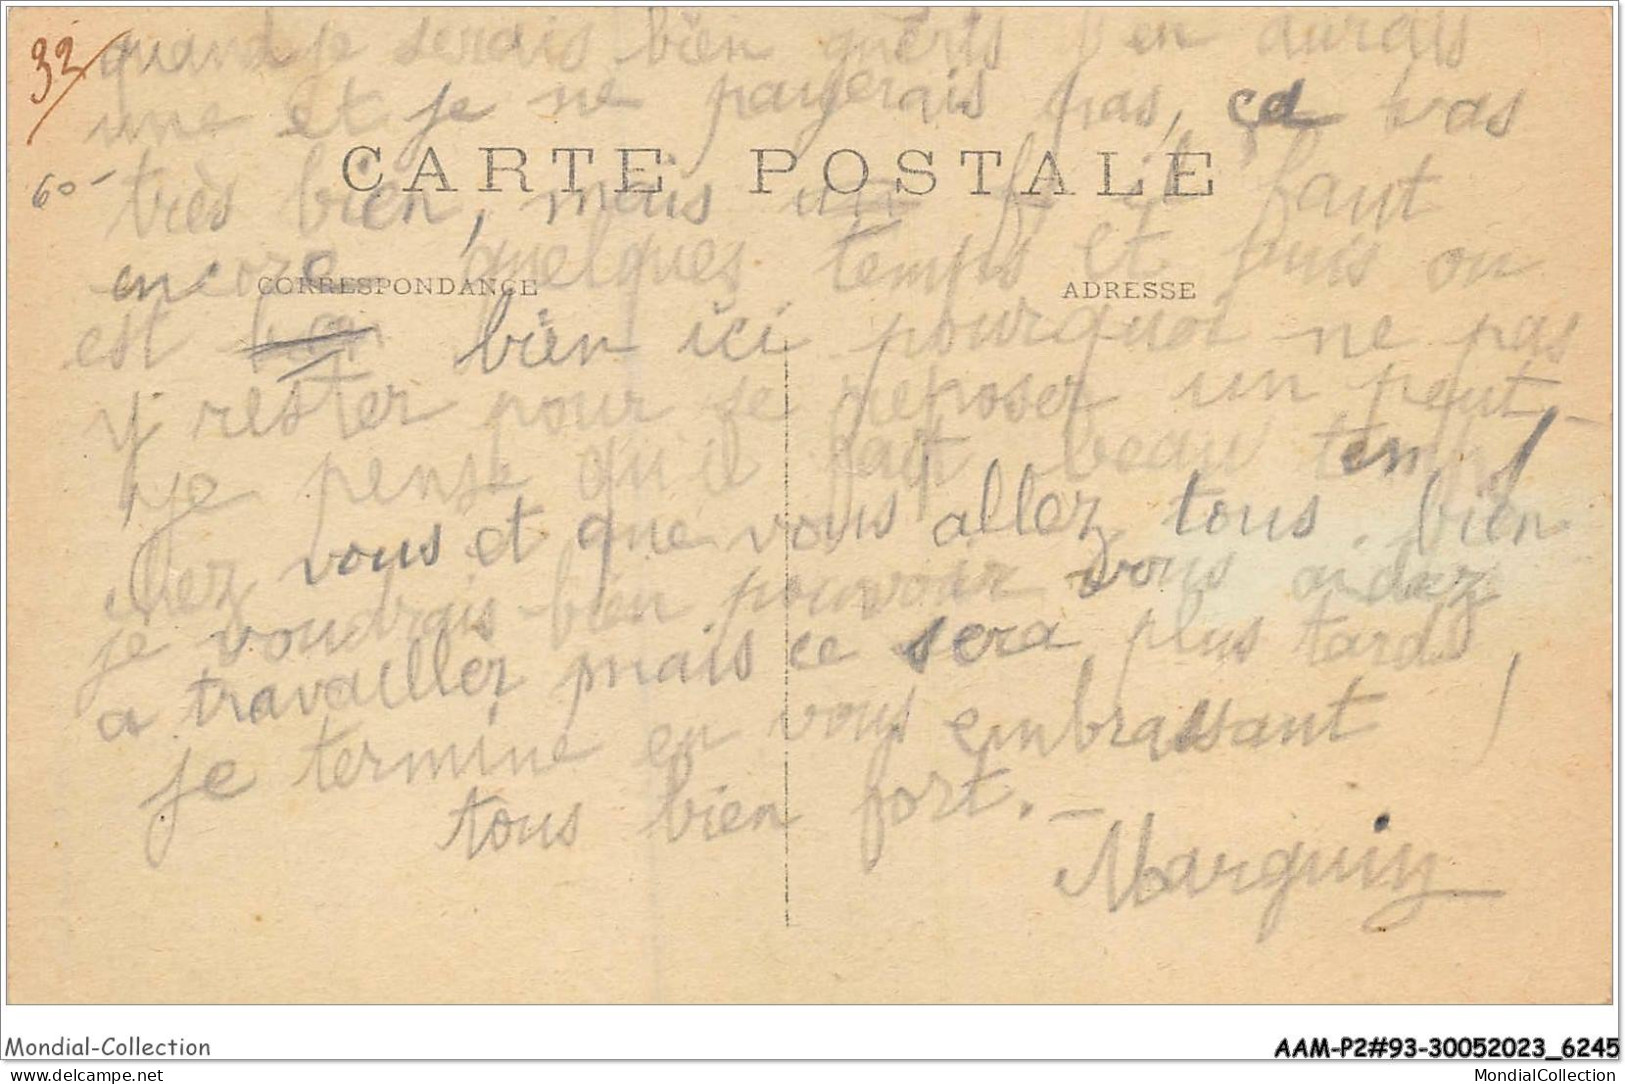 33
quand je serais bien guerts j'en aurais
une et je ne payerais pas, ça vas
60-
CARTE POSTALE
très bien, mais il faut
encore quelques temps et puis on
CORRESPONDANCE
ADRESSE
est bien ici pourquoi ne pas
y rester pour se reposer un peut –
je pense qu'il fait beau temps
chez vous et que vous allez tous bien
je voudrais bien pouvoir vous aidez
a travailler mais ce sera plus tard
je termine en vous embrassant
tous bien fort. –
Marguin
Mondial-Collection
AAM-P2#93-30052023_6245
www.delcampe.net
MondialCollection